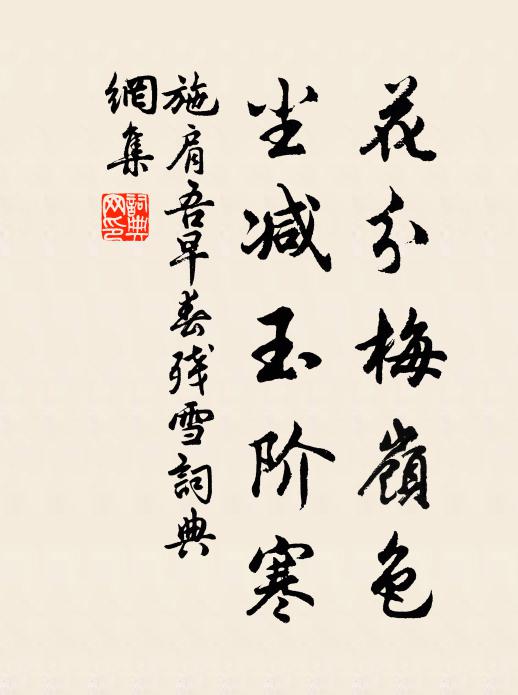 花分梅嶺色
尘减玉阶寒
施肩吾早春残雪詞典
網集
詞典
网印